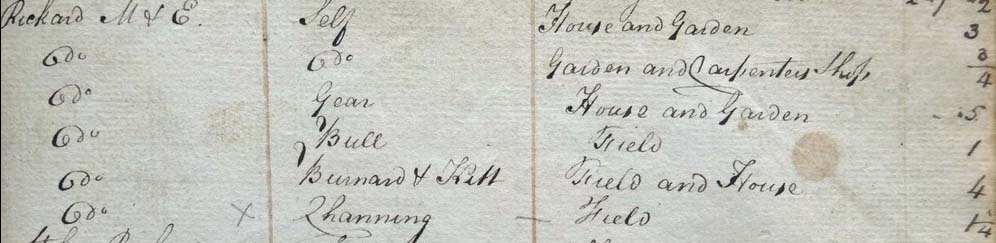 Rickard M & E. Self House and Garden 3
Do Do Garden and Carpenters Shop 3/4
Do Gear House and Garden .5
Do Bull Field 1
Do Burnard & Kitt Field and House 4
Do x Channing Field